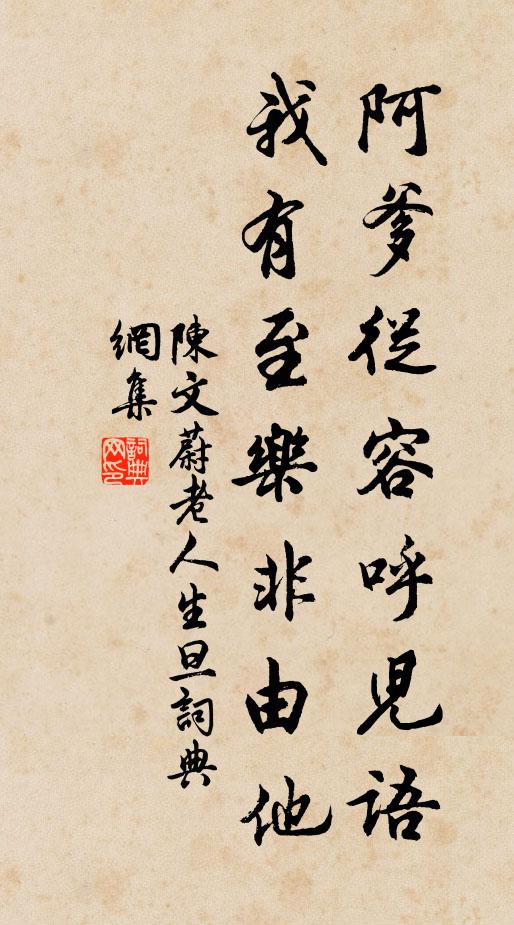 阿爹從容呼兒語
我有至樂非由他
陳文蔚老人生旦詞典
網集
詞典
网印